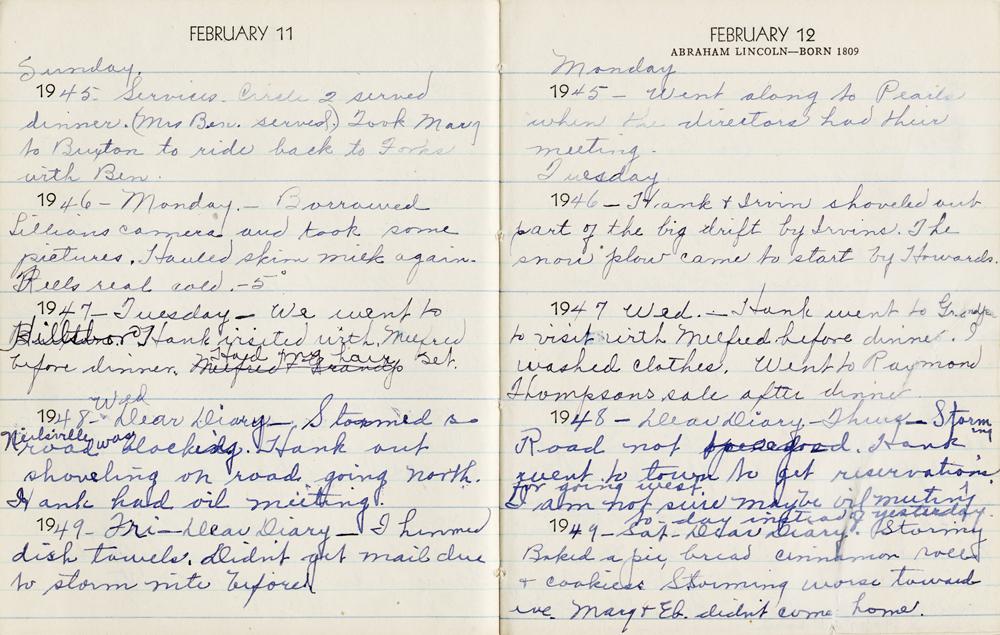 FEBRUARY 11
Sunday.
1945- Services. Circle 2 served
dinner. (Mrs Ben. served.) Took Marg
to Buxton to ride back to Forks
with Ben.
1946- Monday.- Borrowed
Lillians camera and took some
pictures. Hauled skim milk again.
Feels real cold. -5°
1947- Tuesday- We went to
Hillsboro. Hank visited with Melfred
before dinner. Had my hair set.
Wed
1948- Dear Diary-, Stormed so
Neilsville road was blocked. Hank out
shoveling on road going north.
Hank had oil meeting.
1949- Fri-Dear Diary- I hemmed
dish towels. Didnt get mail due
to storm nite before.
FEBRUARY 12
ABRAHAM LINCOLN—BORN 1809
Monday
1945- Went along to Pearls
when the directors had their
meeting.
Tuesday
1946- Hank & Irvin shoveled out
part of the big drift by Irvins. The
snow plow came to start by Howards.
1947 Wed.- Hank went to
to visit with Melfred before dinner. I
washed clothes. Went to Raymond
Thompsons sale after dinner
1948- Dear Diary- Thurs- Storming
Road not good. Hank
went to town to get reservations
for going west.
I am not sure maybe oil meeting
to-day instead of yesterday.
1949- Sat- Dear Diary. Stormy
Baked a pie, bread cinnamon rolls
& cookies. Storming worse toward
eve. Marg & Eb. didn't come home.